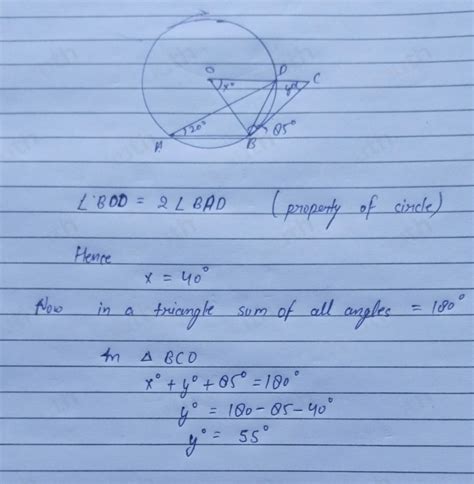 O
x°
D
y°
C
20°
85°
A
B
∠BOD = 2∠BAD (property of circle)
Hence
x = 40°
Now in a triangle sum of all angles = 180°
In △ BCO
x° + y° + 85° = 180°
y° = 180 - 85 - 40°
y° = 55°